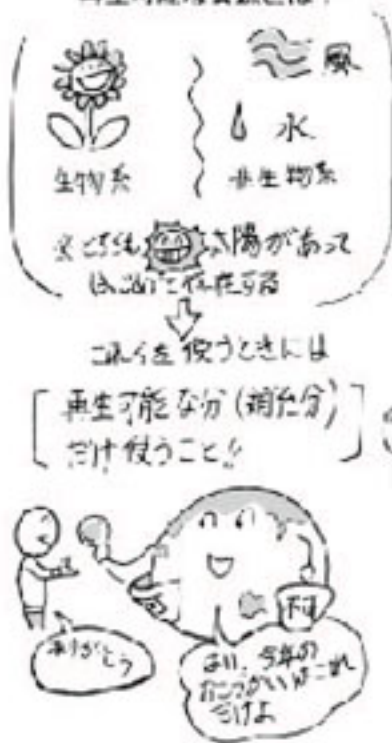 風
水
生物系
非生物系
※どちらも太陽があって
はじめて存在する
これらを使うときには
再生可能な分(補給分)
だけ使うこと!!
ありがとう
はい、今年の
おこづかいはこれ
だけよ